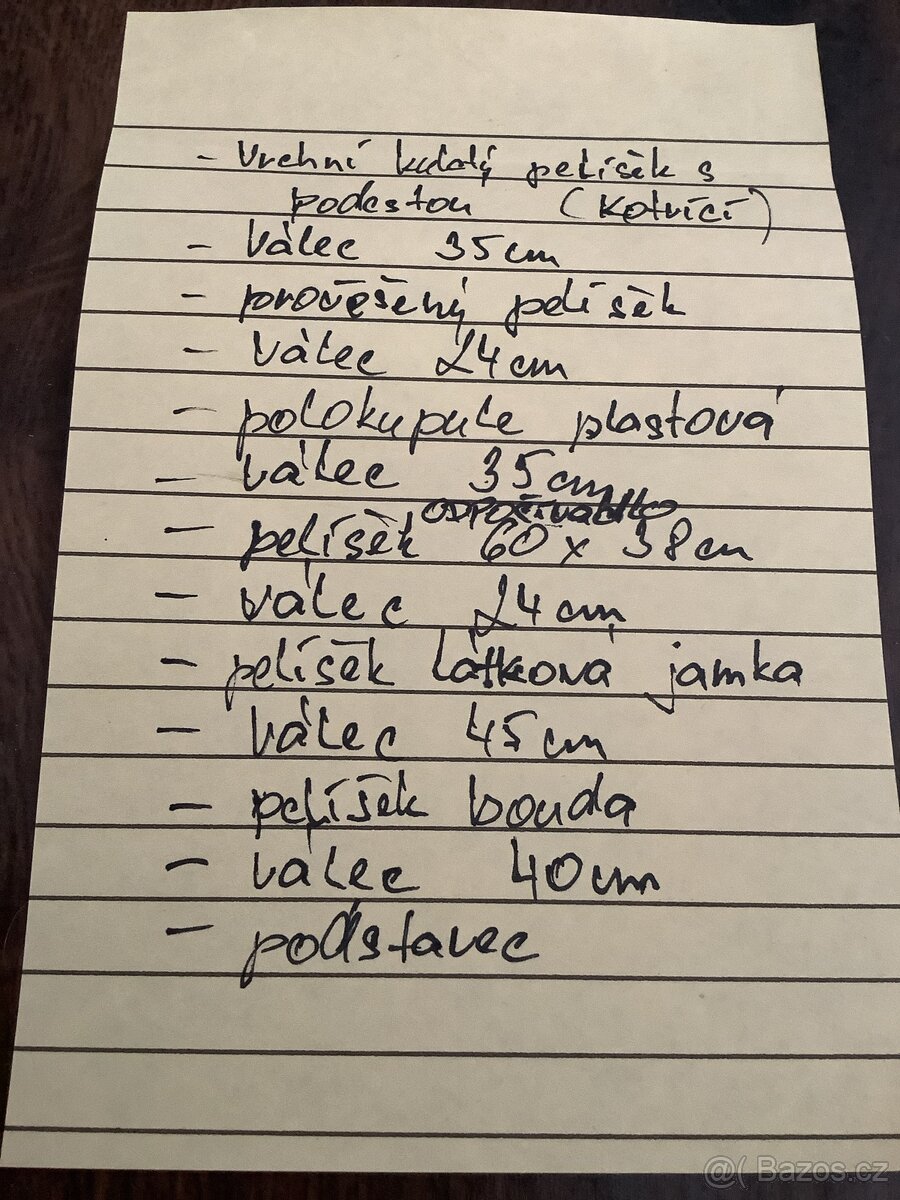 - Vrchní kulatý pelíšek s
podestou (Kotvící)
- Válec 35cm
- prověšený pelíšek
- Válec 24cm
- polokupule plastová
- válec 35cm
odpočívadlo
- pelíšek 60 x 38cm
- válec 24cm
- pelíšek látková jamka
- válec 45cm
- pelíšek bouda
- válec 40cm
- podstavec
@( Bazos.cz